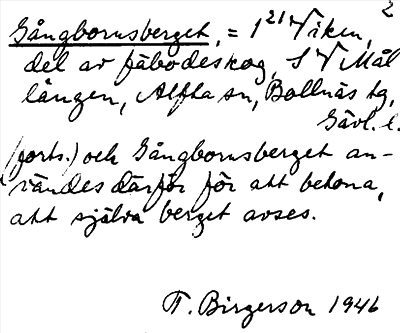 2
Gångbornsberget, = 1 21 Viken,
del av fäbodeskog, S V Mål
lången, Alfta sn, Bollnäs tg,
Gävl. l.
(forts.) och Gångbornsberget an-
vändes därför för att betona,
att själva berget avses.
T. Birgerson 1946